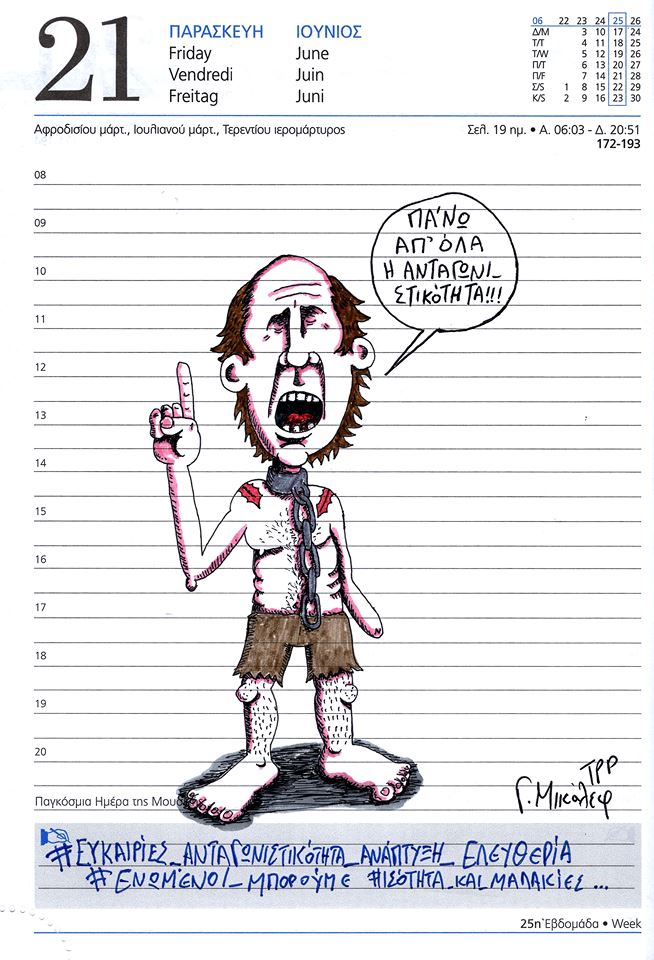 21
ΠΑΡΑΣΚΕΥΗ ΙΟΥΝΙΟΣ
Friday June
Vendredi Juin
Freitag Juni
06 22 23 24 25 26
Δ/M 3 10 17 24
T/T 4 11 18 25
T/W 5 12 19 26
Π/T 6 13 20 27
Π/F 7 14 21 28
Σ/S 1 8 15 22 29
K/S 2 9 16 23 30
Αφροδισίου μάρτ., Ιουλιανού μάρτ., Τερεντίου ιερομάρτυρος
Σελ. 19 ημ. • Α. 06:03 - Δ. 20:51
172-193
08
09
10
11
12
13
14
15
16
17
18
19
20
ΠΑΝΩ
ΑΠ' ΌΛΑ
Η ΑΝΤΑΓΩΝΙ_
ΣΤΙΚΌΤΗΤΑ!!!
ΤΡΡ
Γ. Μικάλεφ
Παγκόσμια Ημέρα της Μου
#ΕΥΚΑΙΡΊΕΣ_ΑΝΤΑΓΩΝΙΣΤΙΚΌΤΗΤΑ_ΑΝΆΠΤΥΞΗ_ΕΛΕΥΘΕΡΊΑ
#ΕΝΩΜΈΝΟΙ_ΜΠΟΡΟΎΜΕ #ΙΣΌΤΗΤΑ_ΚΑΙ ΜΑΛΑΚΊΕΣ...
25η Εβδομάδα • Week